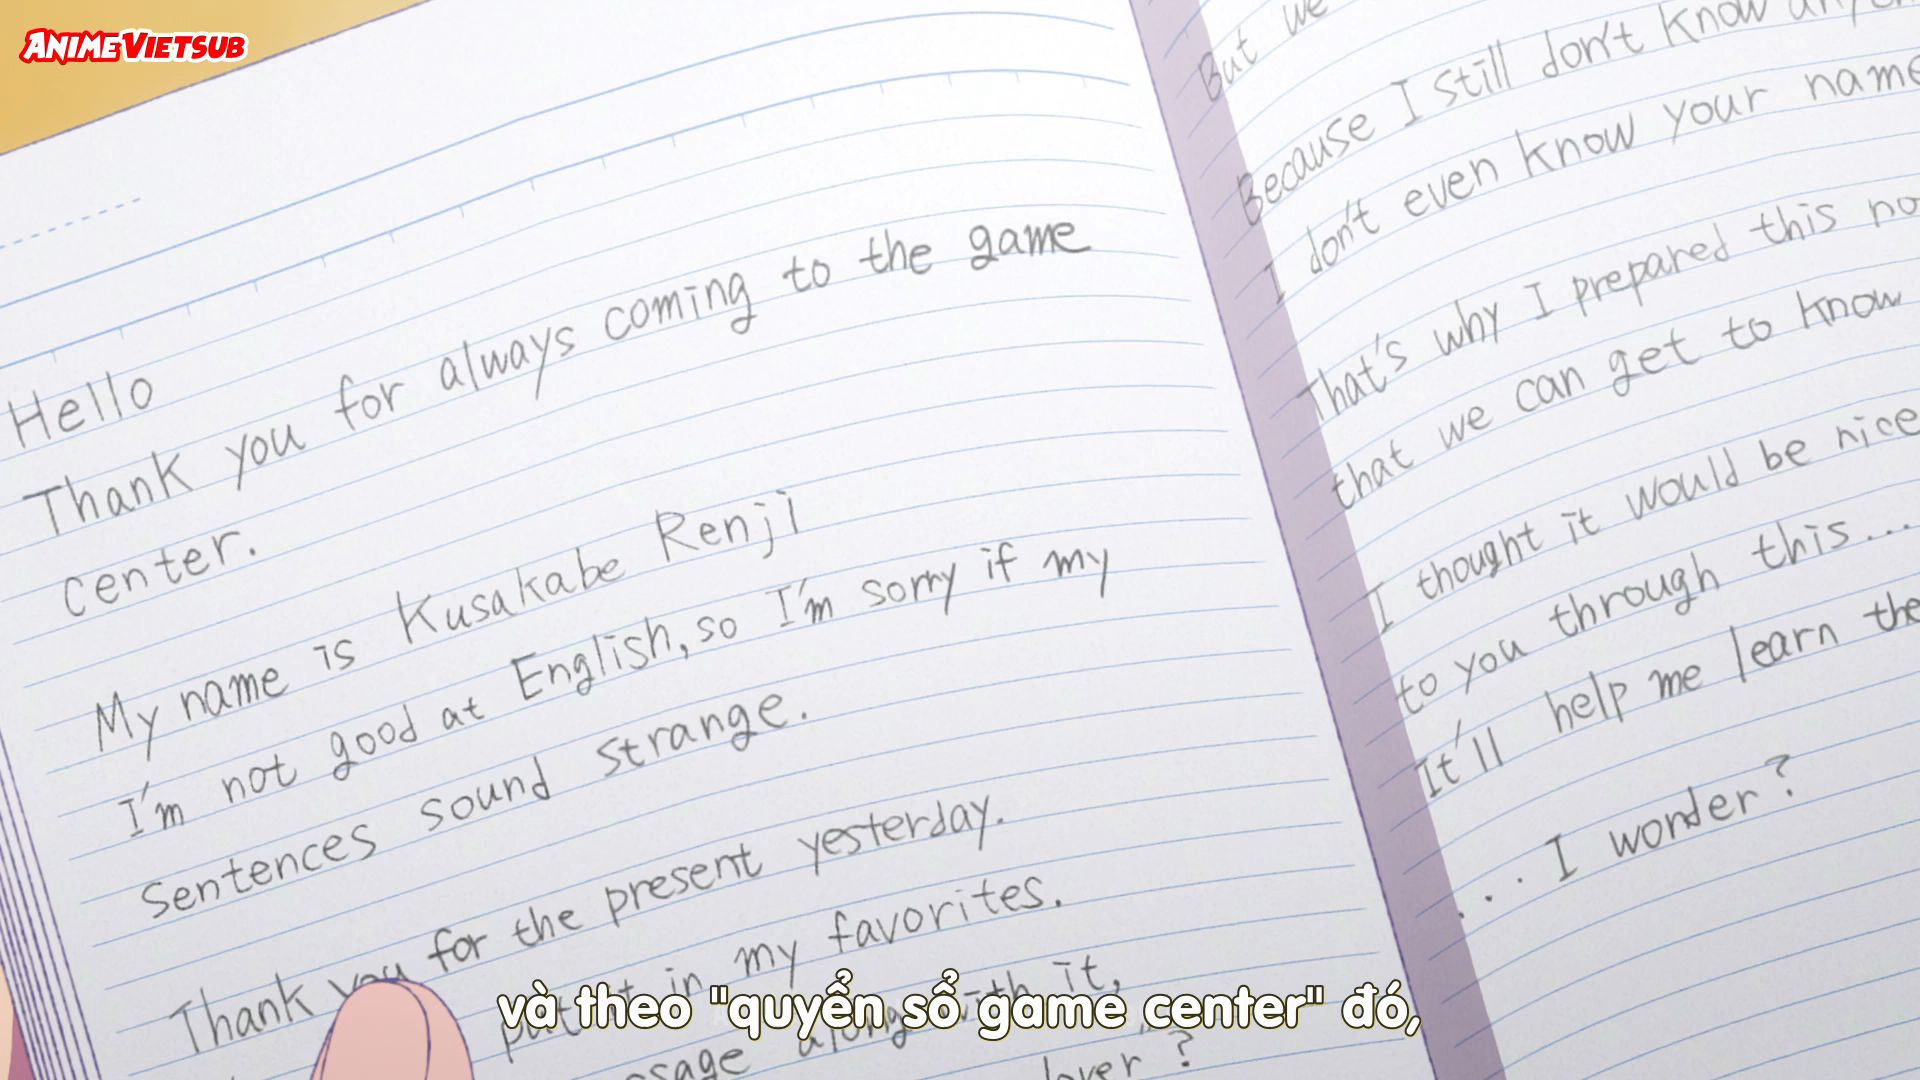 ANIMEVIETSUB
Hello
Thank you for always coming to the game
center.
My name is Kusakabe Renji
I'm not good at English, so I'm sorry if my
Sentences sound strange.
Thank you for the present yesterday.
put it in my favorites.
along with it,
lover?
But we
Because I still don't know
I don't even know your name
That's why I prepared this
that we can get to know
I thought it would be nice
to you through this...
It'll help me learn the
...I wonder?
và theo "quyển sổ game center" đó,